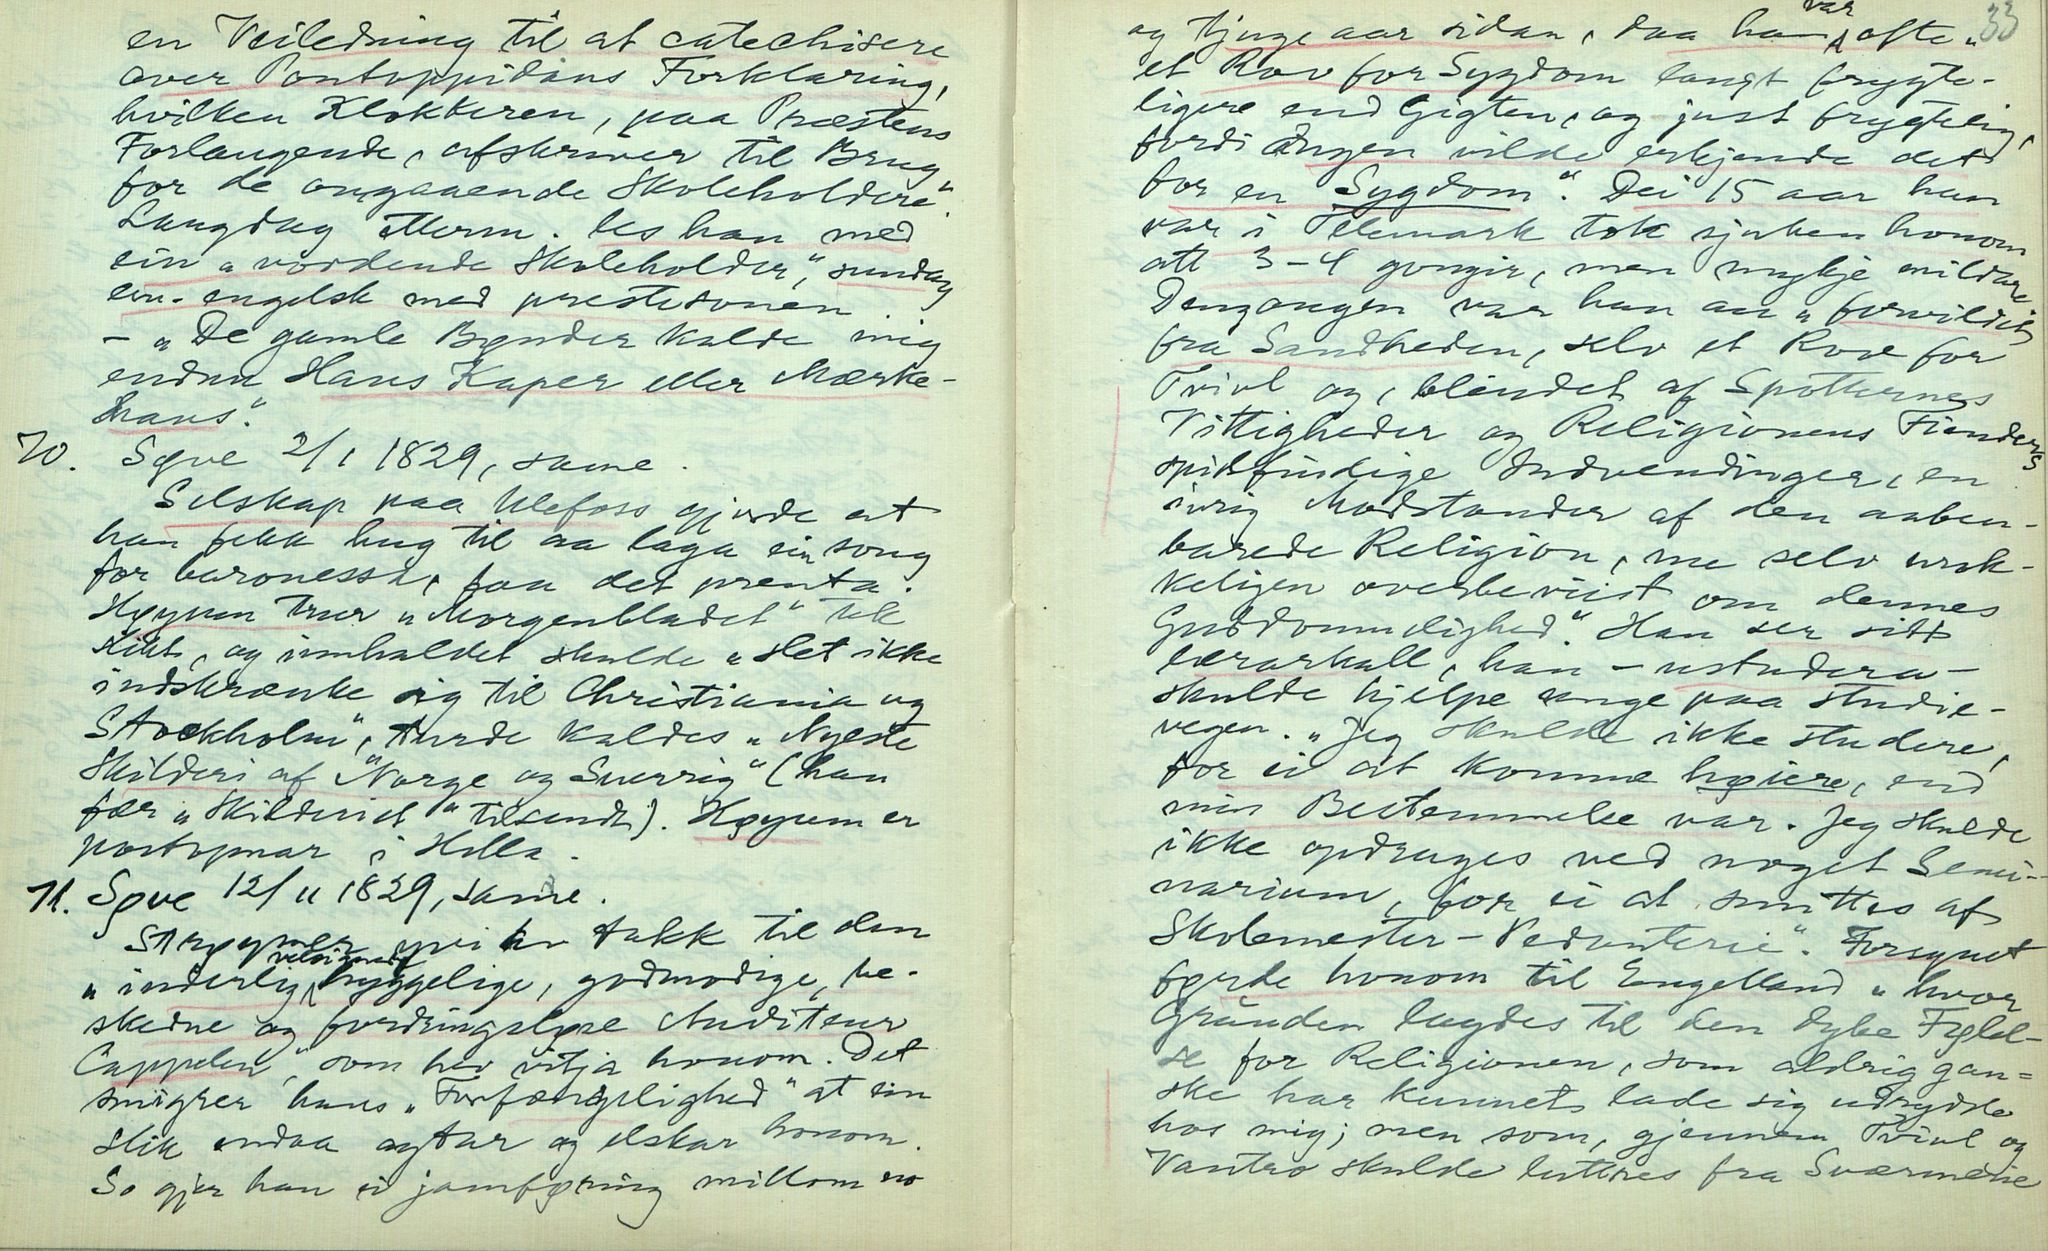 en Veiledning til at catechisere
over Pontoppidans Forklaring,
hvilken Klokkeren, paa Præstens
Forlangende, afskriver til Brug
for de angaaende Skoleholdere".
Laugdag les han med
ein "vordende Skoleholder", sundag
em. engelsk med prestesonen
- "De gamle Bønder kalde mig
endnu Hans Kaper eller Mærke-
hans".
70. Søve 2/1 1829, same.
Selskap paa Ulefoss gjorde at
han fekk hug til aa laga ein song
for baronessa, faa det prenta.
Høyum trur "Morgenbladet" tek
slikt, og innhaldet skulde "slet ikke
indskrænke sig til Christiania og
Stockholm", turde kaldes "Nyeste
Skilderi af "Norge og Sverrig" (han
fær "Skilderiet" tilsendt). Høyum er
postopnar i Holla.
71. Søve 12/11 1829, same.
Strøymer yvi av takk til den
"inderlig velsignede hyggelige, godmodige, be-
skedne og fordringsløse Auditeur
Cappelen", som hev vitja honom. Det
smigrer hans "Forfængelighed" at ein
slik endaa agtar og elskar honom.
So gjer han ei jamføring millom no
33
og tjuge aar sidan, daa han var ofte "
et Rov for Sygdom langt frygte-
ligere end Gigten, og just frygtelig,
fordi Ingen vilde erkjende det
for en Sygdom". Dei 15 aar han
var i Telemark tok sjuken honom
att 3-4 gongir, men mykje mildare
Dengongen var han au "forvildet
fra Sandheden, selv et Rov for
Tvivl og, blendet af Spotternes
Vittigheder og Religionens Fienders
spidsfindige Indvendinger, en
ivrig Modstander af den aaben-
barede Religion, nu selv virk-
keligen overbeviist om dennes
Guddommelighed". Han ser sitt
lærarkall, han - ustudera -
skulde hjelpe unge paa studie-
vegen. "Jeg skulde ikke studere,
for ei at komme høiere, end
min Bestemmelse var. Jeg skulde
ikke opdrages ved noget Semi-
narium, for ei at smittes af
Skolemester-Pedanterie". Forsynet
førde honom til Engelland "hvor
Grunden lagdes til den dybe Følel-
se for Religionen, som aldrig gan-
ske har kunnet lade sig udrydde
hos mig; men som, gjennem Tvivl og
Vantro skulde luttres fra Sværmerie